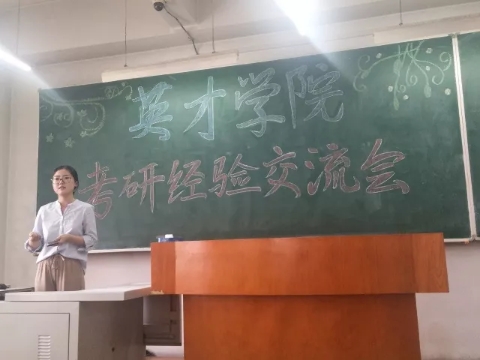 英才学院
考研经验交流会